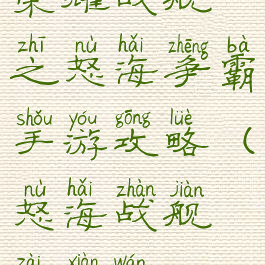 荣耀战舰
zhī nù hǎi zhēng bà
之怒海争霸
shǒu yóu gōng lüè
手游攻略（
nù hǎi zhàn jiàn
怒海战舰
zài xiàn wán